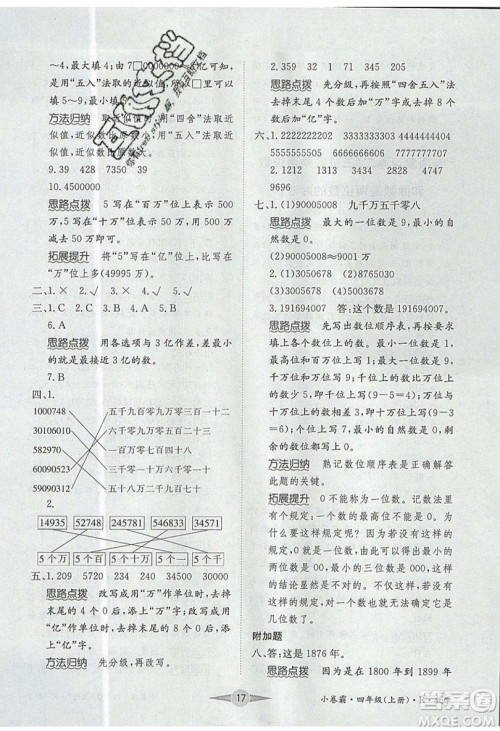 ～4,最大填4;由7□0000000≈8亿可知,
是用“五入”法取的近似值,所以□里可以
填5～9。
方法归纳 取近似值时,用“四舍”法取近
似值,近似数变小;用“五入”法取近似值,
近似数变大。
9.39 428
10.4500000
思路点拨 5写在“百万”位上表示500
万,5写在“亿”位上表示5亿,5写在“十
万”位上表示50万即可。
拓展提升 将“5”写在“亿”位上比写在
“万”位上多(49995万)。
二、1.× 2.√ 3.× 4.√
三、1.C 2.C 3.B 4.A 5.C
6.A
思路点拨 用各选项与3亿作差,差最
小的就是最接近3亿的数。
7.B
四、1.
1000748 五千九百零九万零三百一十二
30106010 一千零九十万零五百二十三
582970 一百万零七百四十八
10900523 五十八万二千九百七十
59090312 三千零一十万六千零一十
2.
14935 52748 281544 566833 34571
5个万 5个百 5个十万 5个千 5个一
五、1.209 5720 234 20000
思路点拨 改写成用“万”作单位时,去
掉末尾的4个0,添上“万”字;改写成用
“亿”作单位时,去掉末尾的8个0,添上
“亿”字。
方法归纳 先分级,再改写。
2.359 32 1 71 345 205
思路点拨 先分级,再按照“四舍五入”法
去掉末尾4个数后加“万”字或去掉末尾
8个数后加“亿”字。
六、1.2222222222 3333333333 4444444444
6666666666 7777777777 9999999999
2.1231 1312 3213 4827 8284
9696
七、1.(1)90005008 九千万五千零八
思路点拨 最大的一位数是9,最小的自
然数是0。
(2)90005008≈9001万
2.(1)1035678 (2)8765310
3.191694007 答:这个数是191694007。
思路点拨 先写出亿位数为1、万位数为
9、千位数为4,个位上的数比万位上的数
少2,则个位为7;千万位上的数比亿位上
的数多8,则千万位为9;十万位上的数是
百万位上的数的6倍,且只能为1和6;其
余各数位都是最小的自然数,则为0。
方法归纳 熟记数位顺序表是正确解答
此题的关键。
拓展提升 0不可能是最小的一位数,因
为有个规定:一个数的最高位不能为0,
如果没有这个规定,那么最小的一位数
是0,最小的两位数就是00,最小的三位
数就是000,最小的四位数就是0000,这
样的结论显然是不对的。因此,有了这样
的规定,最小的一位数应该是1,而不
是0。
附加题
八、答:这是1876年。
思路点拨 因为是在1800年到1899年
17
小卷霸·四年级(上册)·R